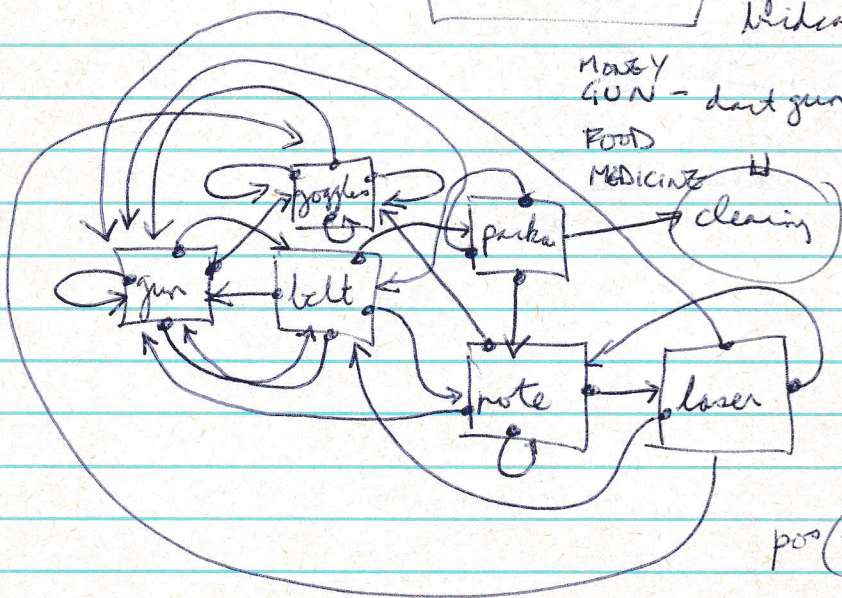 MONEY
GUN - dart gun
FOOD
MEDICINE
goggles
parka
clearing
gun
belt
note
laser
pos(